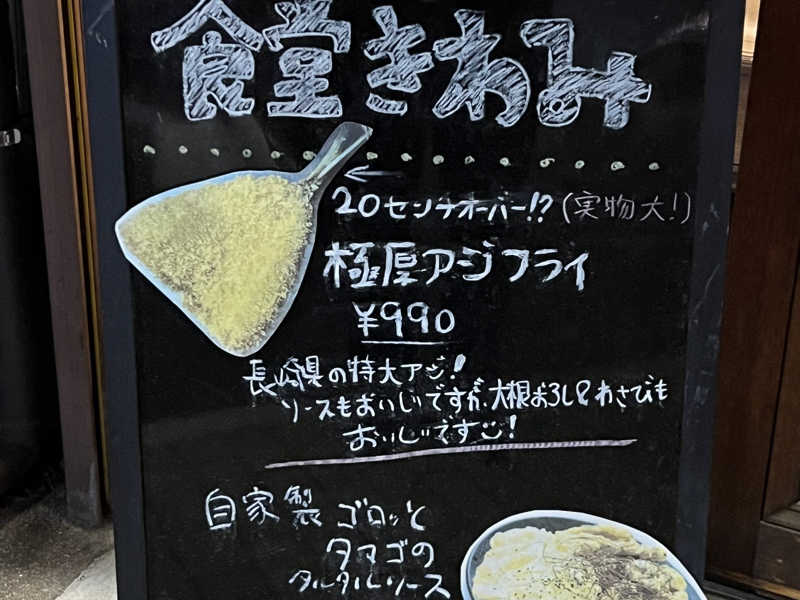 食堂きわみ
20センチオーバー!?(実物大!)
極厚アジフライ
¥990
長崎県の特大アジ!
ソースもおいしいですが、大根おろし&わさびも
おいしいです!
自家製 ゴロッと
タマゴの
タルタルソース